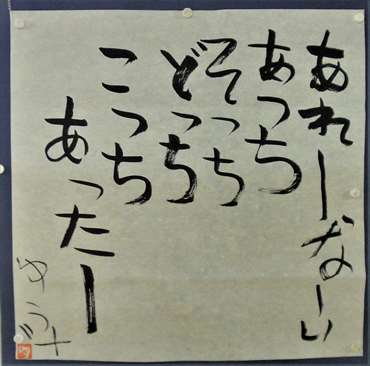 あれーなーい
あっち
そっち
どっち
こっち
あったー